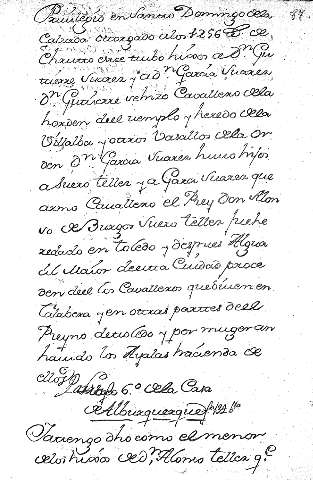 87.
Privilegio en Santo Domingo de la
Calzada otorgado a los 1256 de
Christo este tubo hijos a Dn. Gu
tierre Suarez y a Dn. Garcia Suarez,
Dn. Gutierre se hizo Cavallero de la
horden del templo y heredo de la
Villalba y otros Vasallos de la or
den Dn. Garcia Suarez huvo hijos
a Suero tellez y a Garci Suarez que
armo Cavallero el Rey Don Alon
so de Burgos Suero tellez fue he
redado en toledo y despues Algua
cil Maior de esta Ciudad proce
den del los Cavalleros que biven en
talabera y en otras partes de el
Reyno de toledo y por muger an
havido los Ayalas hacienda de
ellos
6.º de la Casa
de Alburquerque
Ja tengo dho como el menor
de los hijos de Dn. Alonso tellez q.e